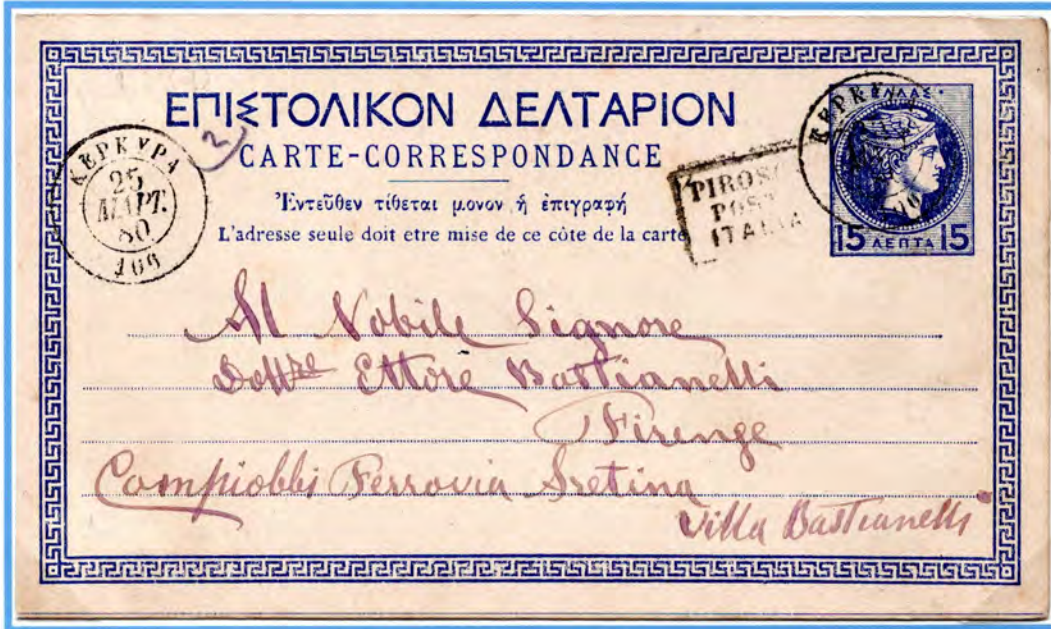 ΕΠΙΣΤΟΛΙΚΟΝ ΔΕΛΤΑΡΙΟΝ
CARTE-CORRESPONDANCE
Ἐντεῦθεν τίθεται μονον ἡ ἐπιγραφή
L'adresse seule doit etre mise de ce côte de la carte
ΚΕΡΚΥΡΑ
25
ΜΑΡΤ.
80
109
2
PIROSC
POST
ITALIA
ΚΕΡΚΥ
ΕΛΛΑΣ
15 ΛΕΠΤΑ 15
Al Nobile Signore
Dottre Ettore Bastianelli
Firenze
Compiobbi Ferrovia Aretina
Villa Bastianelli